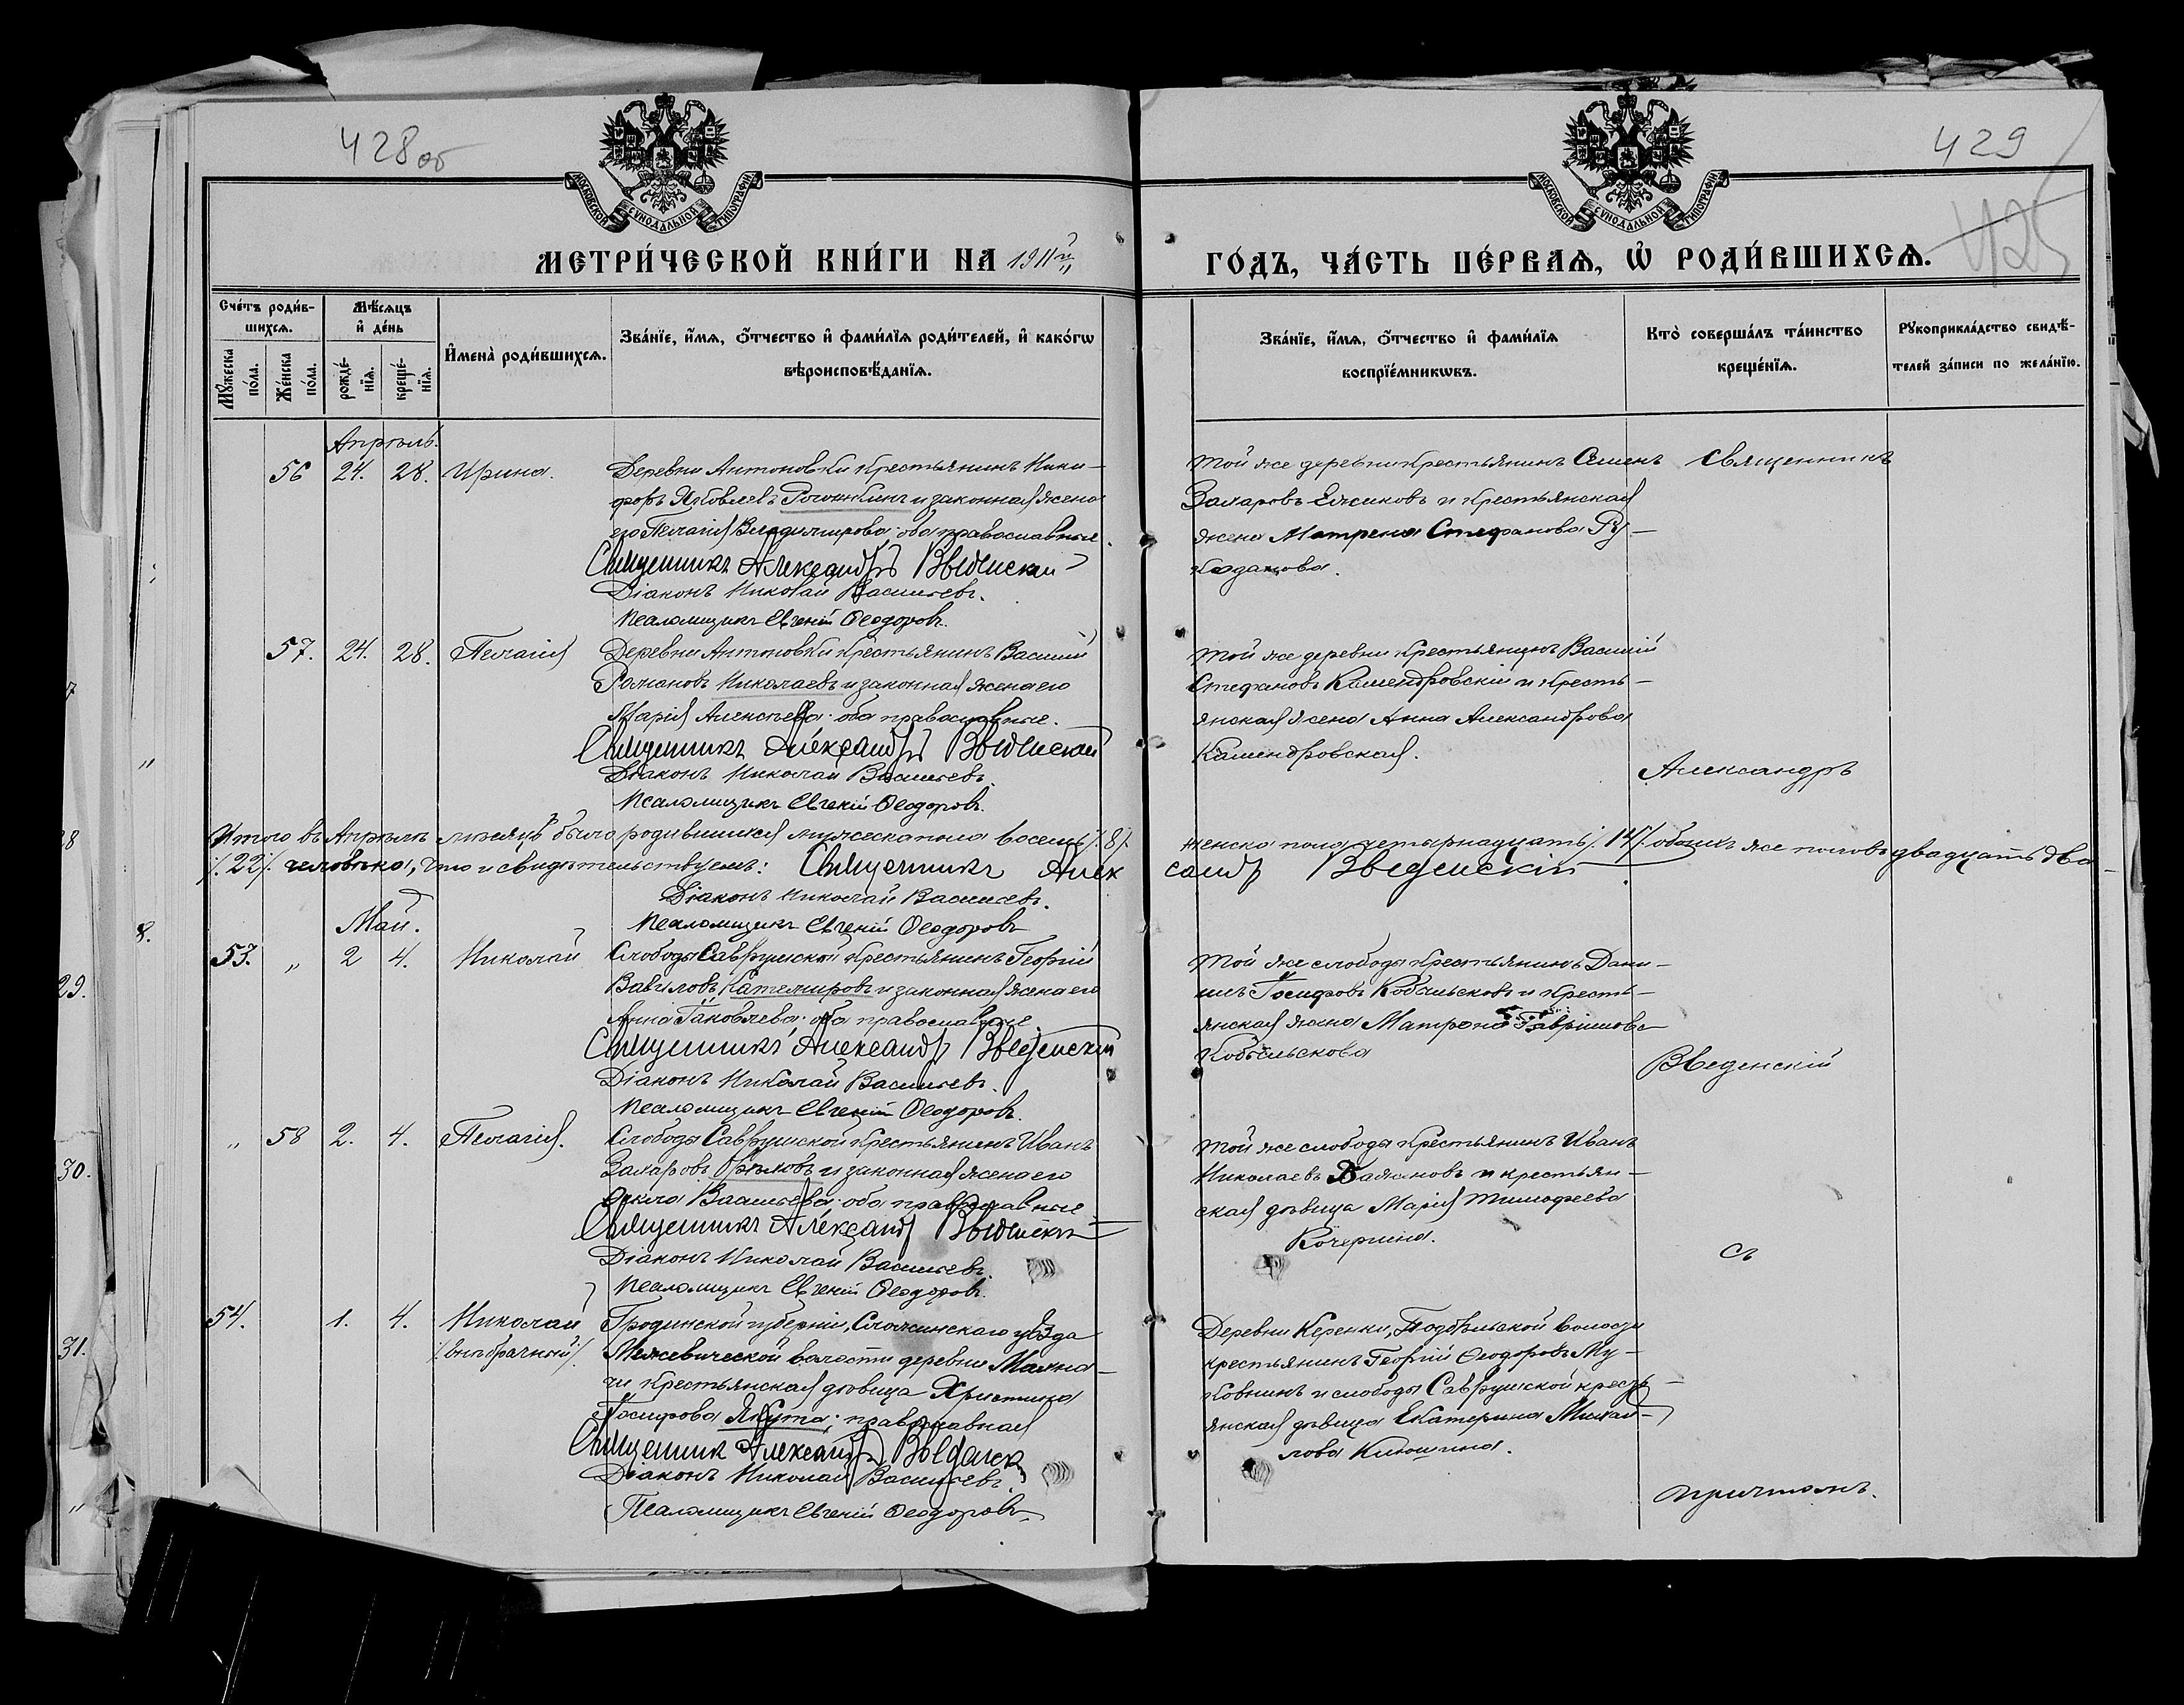 428 об
429
425
МОСКОВСКОЙ СѴНОДАЛЬНОЙ ТИПОГРАФІИ
МОСКОВСКОЙ СѴНОДАЛЬНОЙ ТИПОГРАФІИ
МЕТРИ́ЧЕСКОЙ КНИ́ГИ НА 1911й
ГО́ДЪ, ЧА́СТЬ ПЕ́РВАѦ, Ѡ҆ РОДИ́ВШИХСѦ.
Сче́тъ роди́в-
шихсѧ.
Мѣ́сѧцъ
и҆ де́нь
Мꙋ́жеска
по́ла.
Же́нска
по́ла.
рожде́-
нїѧ.
креще́-
нїѧ.
И҆мена̀ роди́вшихсѧ.
Зва́нїе, и҆́мѧ, ѻ҆́тчество и҆ фами́лїѧ роди́телей, и҆ како́гѡ
вѣроисповѣ́данїѧ.
Зва́нїе, и҆́мѧ, ѻ҆́тчество и҆ фами́лїѧ
воспрїе́мникѡвъ.
Кто̀ соверша́лъ та́инство
креще́нїѧ.
Рꙋкоприкла́дство свидѣ́-
телей за́писи по жела́нїю.
Апрѣль.
56 24. 28. Ирина.
Деревни Антоновки крестьянинъ Ники-
форъ Яковлевъ и законная жена
его Пелагія Владимирова; оба православные.
Священникъ Александръ Введенскій
Діаконъ Николай Васильевъ.
Псаломщикъ Евгеній Ѳеодоровъ.
Той же деревни крестьянинъ Семенъ
Захаровъ Елисиковъ и крестьянская
жена Матрена Стефанова Ру-
Священникъ
57. 24. 28. Пелагія
Деревни Антоновки крестьянинъ Василій
Романовъ Николаевъ и законная жена его
Марія Алексѣева; оба православные.
Священникъ Александръ Введенскій
Діаконъ Николай Васильевъ.
Псаломщикъ Евгеній Ѳеодоровъ.
Той же деревни крестьянинъ Василій
Стефановъ Камендровскій и кресть-
янская жена Анна Александрова
Камендровская.
Александръ
Итого въ Апрѣлѣ мѣсяцѣ было родившихся мужеска пола восемь /8/.
женска пола четырнадцать /14/. обоихъ же половъ двадцать два
/22/. человѣка, что и свидѣтельствуемъ: Священникъ Александръ Введенскій
Діаконъ Николай Васильевъ.
Псаломщикъ Евгеній Ѳеодоровъ
Май.
53. „ 2 4. Николай
Слободы Саврушской крестьянинъ Георгій
Вавиловъ Катемировъ и законная жена его
Анна Іаковлева; оба православные.
Священникъ Александръ Введенскій
Діаконъ Николай Васильевъ.
Псаломщикъ Евгеній Ѳеодоровъ.
Той же слободы крестьянинъ Дани-
илъ Іосифовъ Кобыльсковъ и кресть-
янская жена Матрона Гавріилова
Кобыльскова
Введенскій
„ 58 2. 4. Пелагія.
Слободы Саврушской крестьянинъ Иванъ
Захаровъ и законная жена его
Ѳекла Васильева; оба православные
Священникъ Александръ Введенскій
Діаконъ Николай Васильевъ.
Псаломщикъ Евгеній Ѳеодоровъ.
Той же слободы крестьянинъ Иванъ
Николаевъ Важановъ и крестьян-
ская дѣвица Марія Тимофеева
Кочергина.
съ
54. 1. 4. Николай
/внѣбрачный/.
Гродненской губерніи, Слонимскаго уѣзда
Межевической волости деревни
крестьянская дѣвица Христина
Іосифова Якута; православная
Священникъ Александръ Введенск
Діаконъ Николай Васильевъ.
Псаломщикъ Евгеній Ѳеодоровъ.
Деревни Керенки, Подбѣльской волости
крестьянинъ Георгій Ѳеодоровъ Му-
ковнинъ и слободы Саврушской кресть-
янская дѣвица Екатерина Михай-
лова Клюшина.
причтомъ.
28
8.
29.
30.
31.